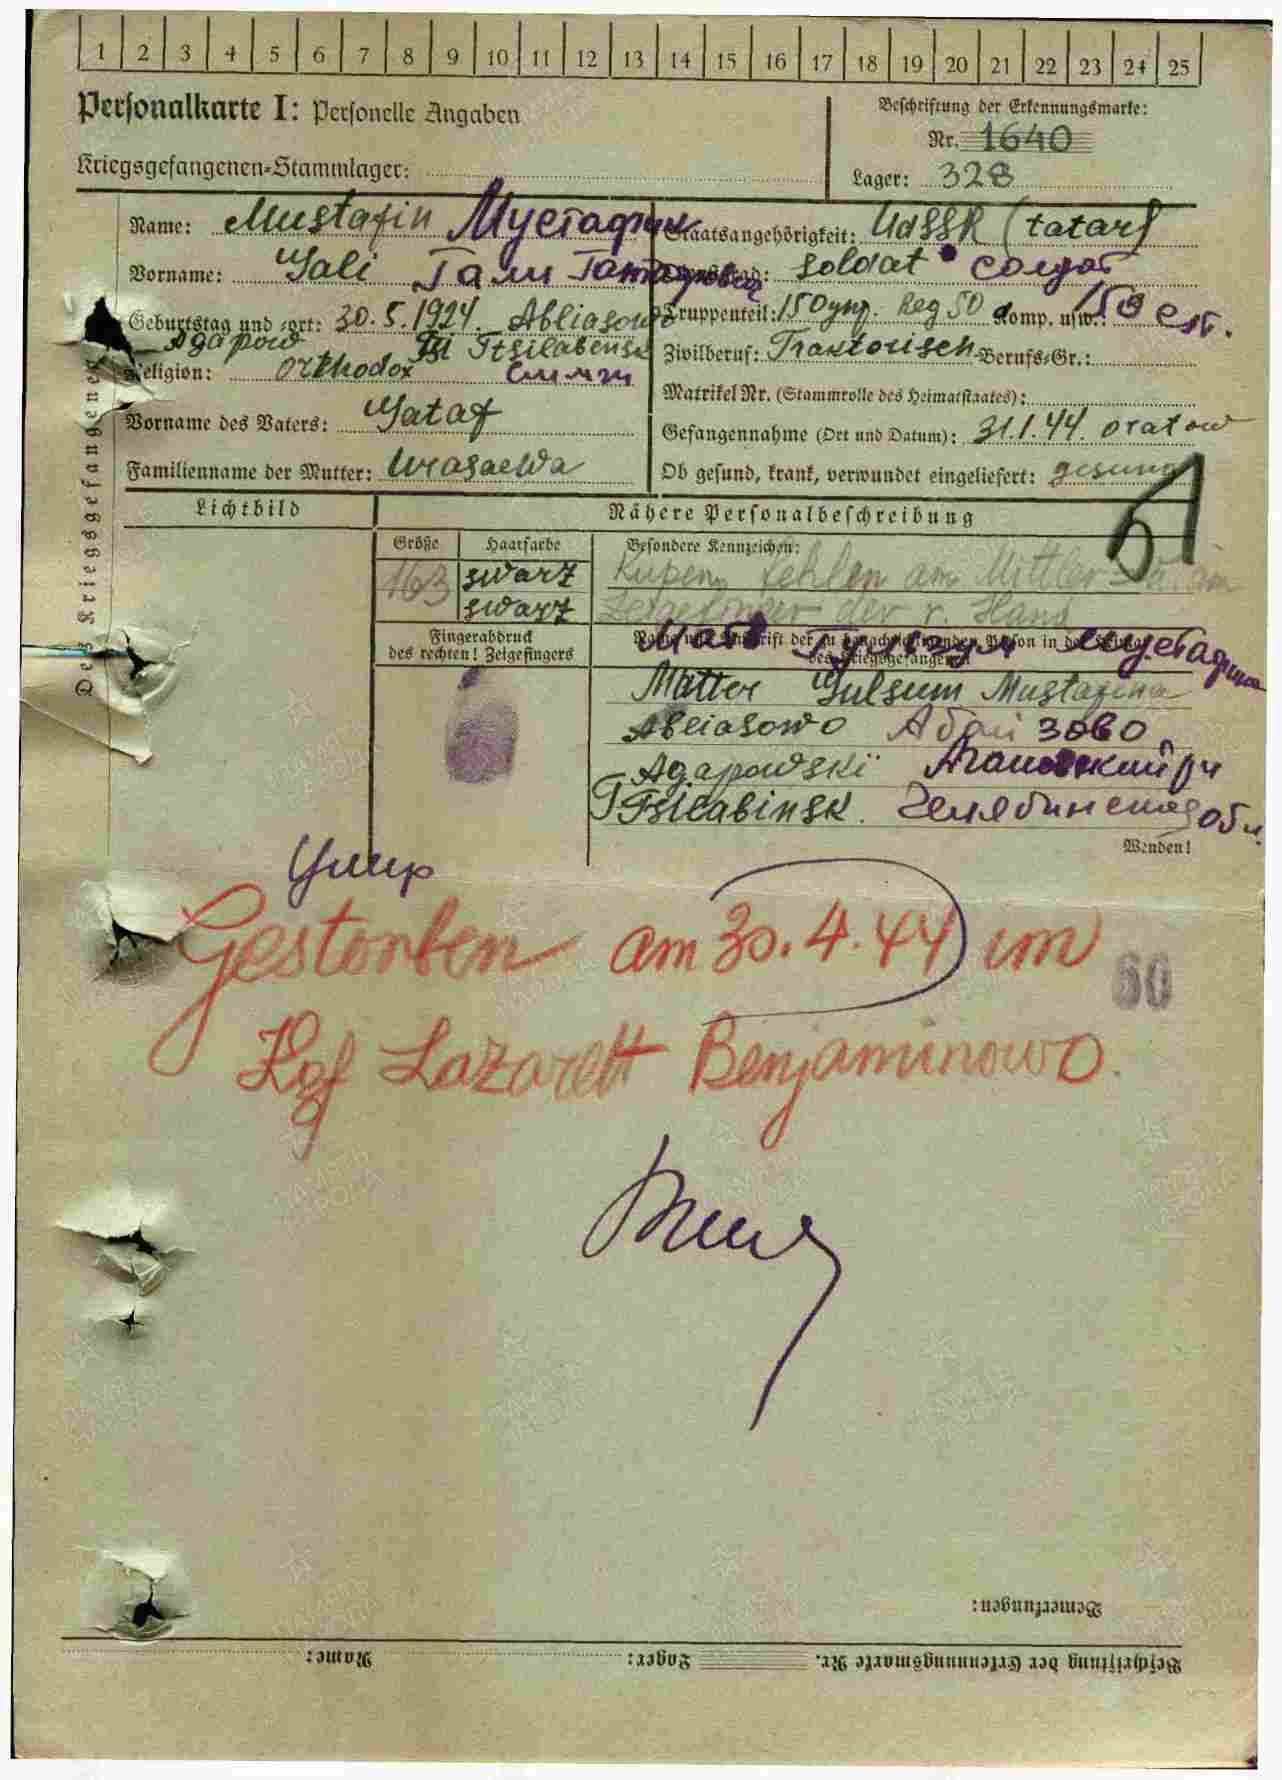 1 2 3 4 5 6 7 8 9 10 11 12 13 14 15 16 17 18 19 20 21 22 23 24 25
Personalkarte I: Personelle Angaben
Beschriftung der Erkennungsmarke:
Nr. 1640
Kriegsgefangenen-Stammlager:
Lager: 328
Des Kriegsgefangenen
Name: Mustafin Мустафин
Vorname: Gali Гали
Geburtstag und -ort: 30.5.1924. Abliasowo
Agapow Tsilabensk
Religion: Orthodox
Vorname des Vaters: Gataf
Familienname der Mutter: Urasaewa
Staatsangehörigkeit: UdSSR (tatar)
Soldat солдат
Truppenteil: 150 Reg 50 Komp. usw.:
Zivilberuf: Traktorisch Berufs-Gr.:
Matrikel Nr. (Stammrolle des Heimatstaates):
Gefangennahme (Ort und Datum): 31.1.44. oratow
Ob gesund, krank, verwundet eingeliefert: gesund
Lichtbild
Nähere Personalbeschreibung
Größe Haarfarbe Besondere Kennzeichen:
163 swarz
swarz
Kupen fehlen am Mittler
Zeigefinger der r. Hand
Fingerabdruck
des rechten! Zeigefingers
Name und Anschrift der zu benachrichtigenden Person in der Heimat
des Kriegsgefangenen
Мать Гульзум Мустафина
Mutter Gulsum Mustafina
Abliasowo
Agapowski
Tsilabinsk. Челябинская обл.
Wenden!
Умер
Gestorben am 30.4.44 im
60
Kgf Lazarett Benjaminowo.
Bemerkungen:
Beschriftung der Erkennungsmarke Nr. Lager: Name:
ПАМЯТЬ НАРОДА